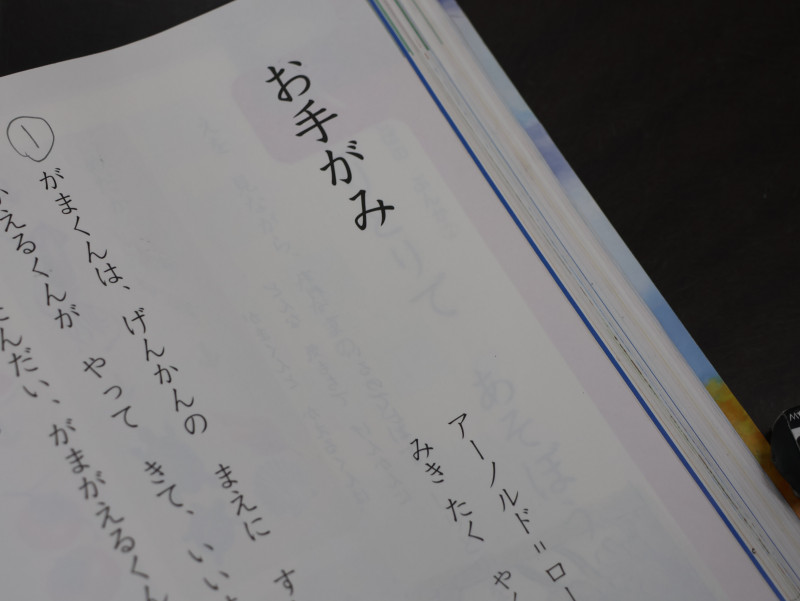 お手がみ
アーノルド=ロー
みき たく や
①
がまくんは、げんかんの まえに す
かえるくんが やって きて、いい
んだい、がまがえるくん